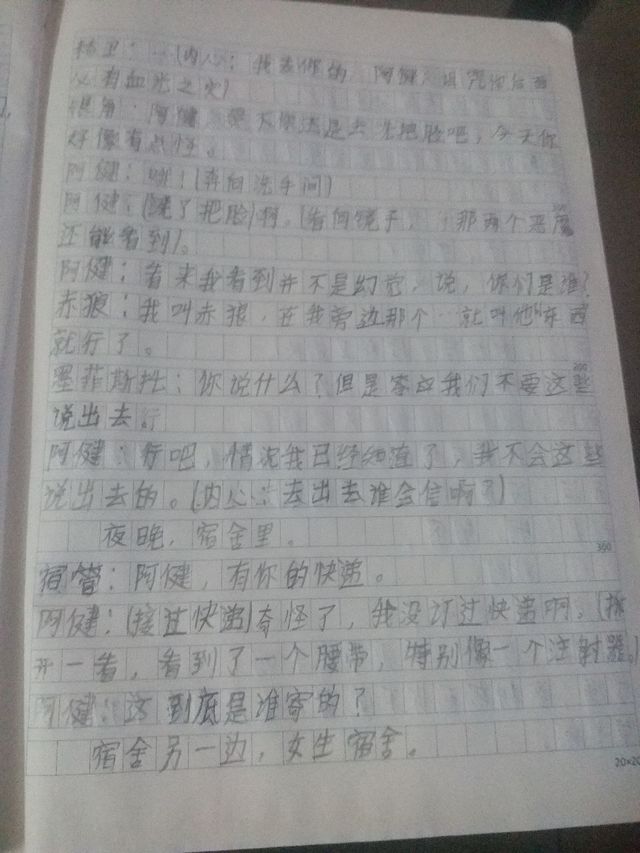 卫：…(内心：我去你的，阿健
必有血光之灾)
阿健，要不你还是去洗把脸吧，今天你
好像有点怪。
阿健：哦！(奔向洗手间)
阿健：(洗了把脸)啊。(看向镜子，那两个恶魔
还能看到)。
阿健：看来我看到并不是幻觉，说，你们是谁？
赤狼：我叫赤狼，在我旁边那个…就叫他"东西
就行了。
墨菲斯托：你说什么？但是答应我们不要这些
200
说出去行
阿健：行吧，情况我已经知道了，我不会这些
说出去的。(内心：去出去谁会信啊？)
夜晚，宿舍里。
300
宿管：阿健，有你的快递。
阿健：(接过快递)奇怪了，我没订过快递啊。(拆
开一看，看到了一个腰带，特别像一个注射器。)
阿健：这到底是谁寄的？
宿舍另一边，女生宿舍。
20×20